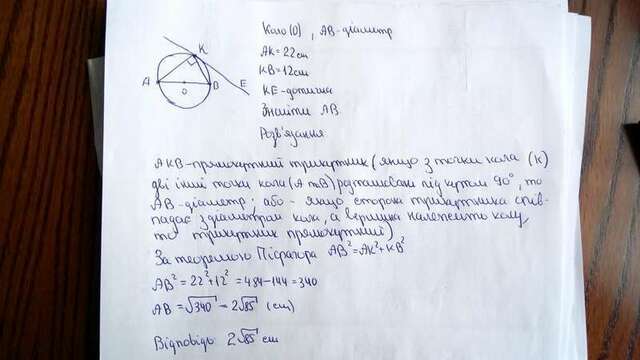 A
K
O
B
E
Коло (О), АВ-діаметр
АК=22см
КВ=12см
КЕ-дотична
Знайти АВ
Розв'язання
АКВ-прямокутний трикутник (якщо з точки кола (К)
дві інші точки кола (А та В) розташовані під кутом 90°, то
АВ-діаметр; або - якщо сторона трикутника спів-
падає з діаметром кола, а вершини належить колу,
то трикутник прямокутний)
За теоремою Піфагора АВ²=АК²+КВ²
АВ²=22²+12²=484-144=340
АВ=√340=2√85 (см)
Відповідь: 2√85 см